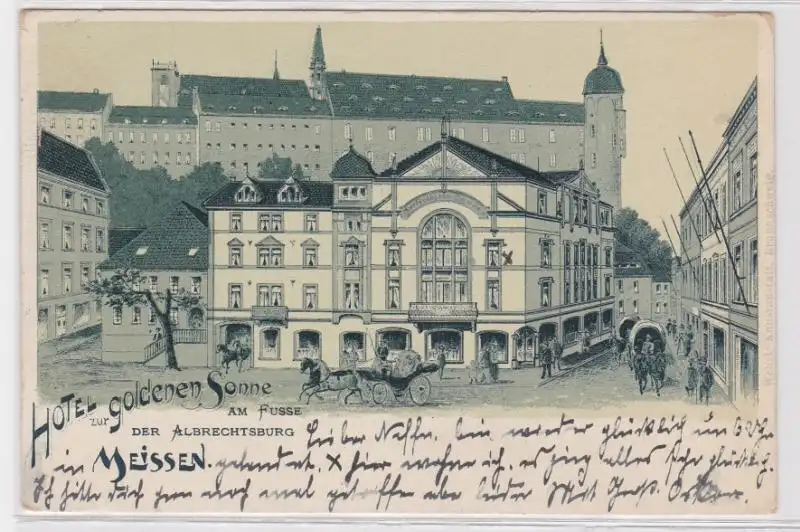 HOTEL zur goldenen Sonne
AM FUSSE
DER ALBRECHTSBURG
in MEISSEN.
Lieber Neffe, bin wieder glücklich um 6 Uhr
gelandet. x hier wohne ich. es ging alles sehr glücklich.
Ich hätte dich gern noch mal getroffen aber leider Mit Gruß